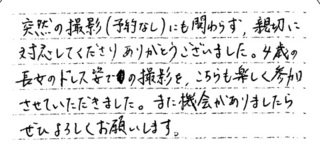 突然の撮影(予約なし)にも関わらず,親切に
対応してくださりありがとうございました。4歳の
長女のドレス姿での撮影を,こちらも楽しく参加
させていただきました。また機会がありましたら
ぜひよろしくお願いします。